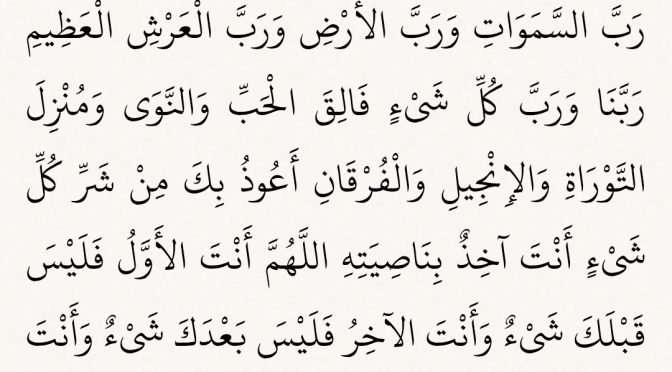 رَبَّ السَّمَوَاتِ وَرَبَّ الأَرْضِ وَرَبَّ الْعَرْشِ الْعَظِيمِ
رَبَّنَا وَرَبَّ كُلِّ شَىْءٍ فَالِقَ الْحَبِّ وَالنَّوَى وَمُنْزِلَ
التَّوْرَاةِ وَالإِنْجِيلِ وَالْفُرْقَانِ أَعُوذُ بِكَ مِنْ شَرِّ كُلِّ
شَىْءٍ أَنْتَ آخِذٌ بِنَاصِيَتِهِ اللَّهُمَّ أَنْتَ الأَوَّلُ فَلَيْسَ
قَبْلَكَ شَىْءٌ وَأَنْتَ الآخِرُ فَلَيْسَ بَعْدَكَ شَىْءٌ وَأَنْتَ